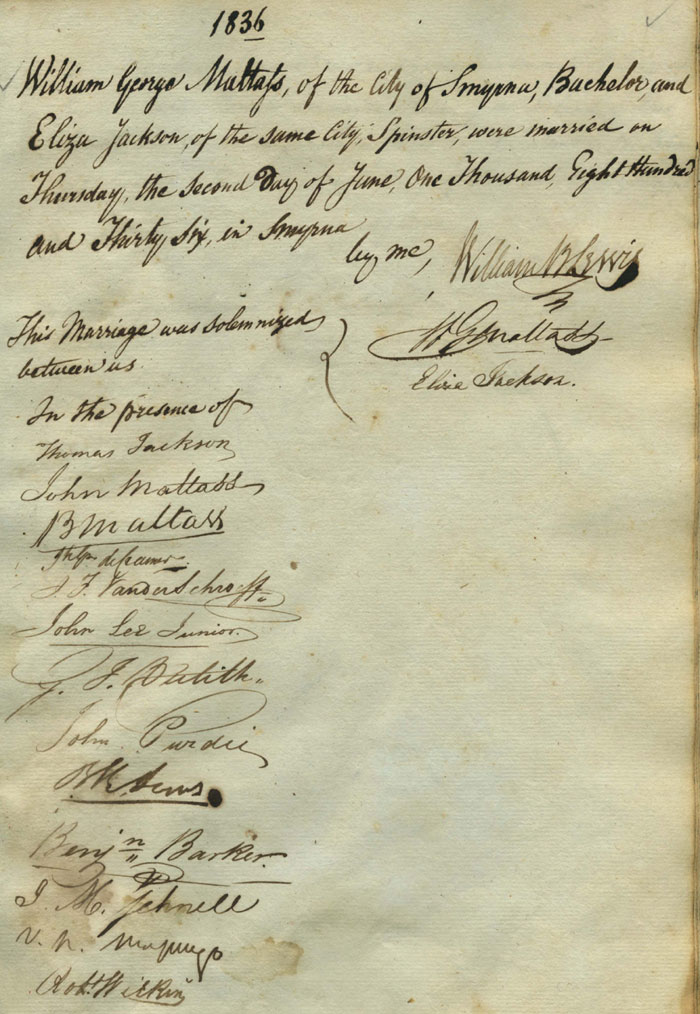 1836
William George Maltass, of the City of Smyrna, Bachelor, and
Eliza Jackson, of the same City, Spinster, were married on
Thursday, the second Day of June, One Thousand, Eight Hundred
and Thirty Six, in Smyrna
by me, William B Lewis
This Marriage was solemnized
between us
W G Maltass
Eliza Jackson.
In the presence of
Thomas Jackson
John Maltass
B Maltass
J F. VanderSchroeff
John Lee Junior.
John Purdie
Benjn Barker.
J. M. Schnell
V. N.
Robt. Wilkin